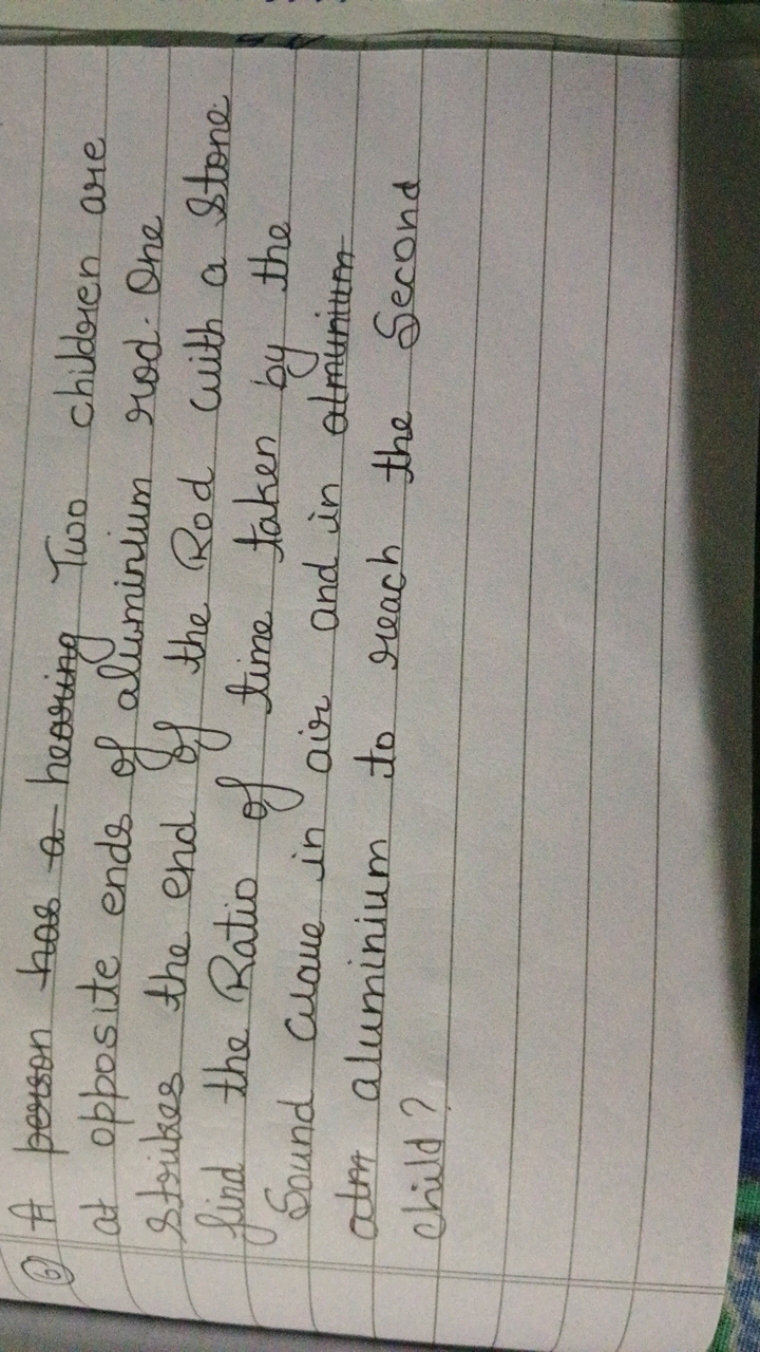 6 A person has a hearing Two children are
at opposite ends of aluminium rod. One
strikes the end of the Rod with a stone.
find the Ratio of time taken by the
Sound wave in air and in almunium
alm aluminium to reach the Second
child?